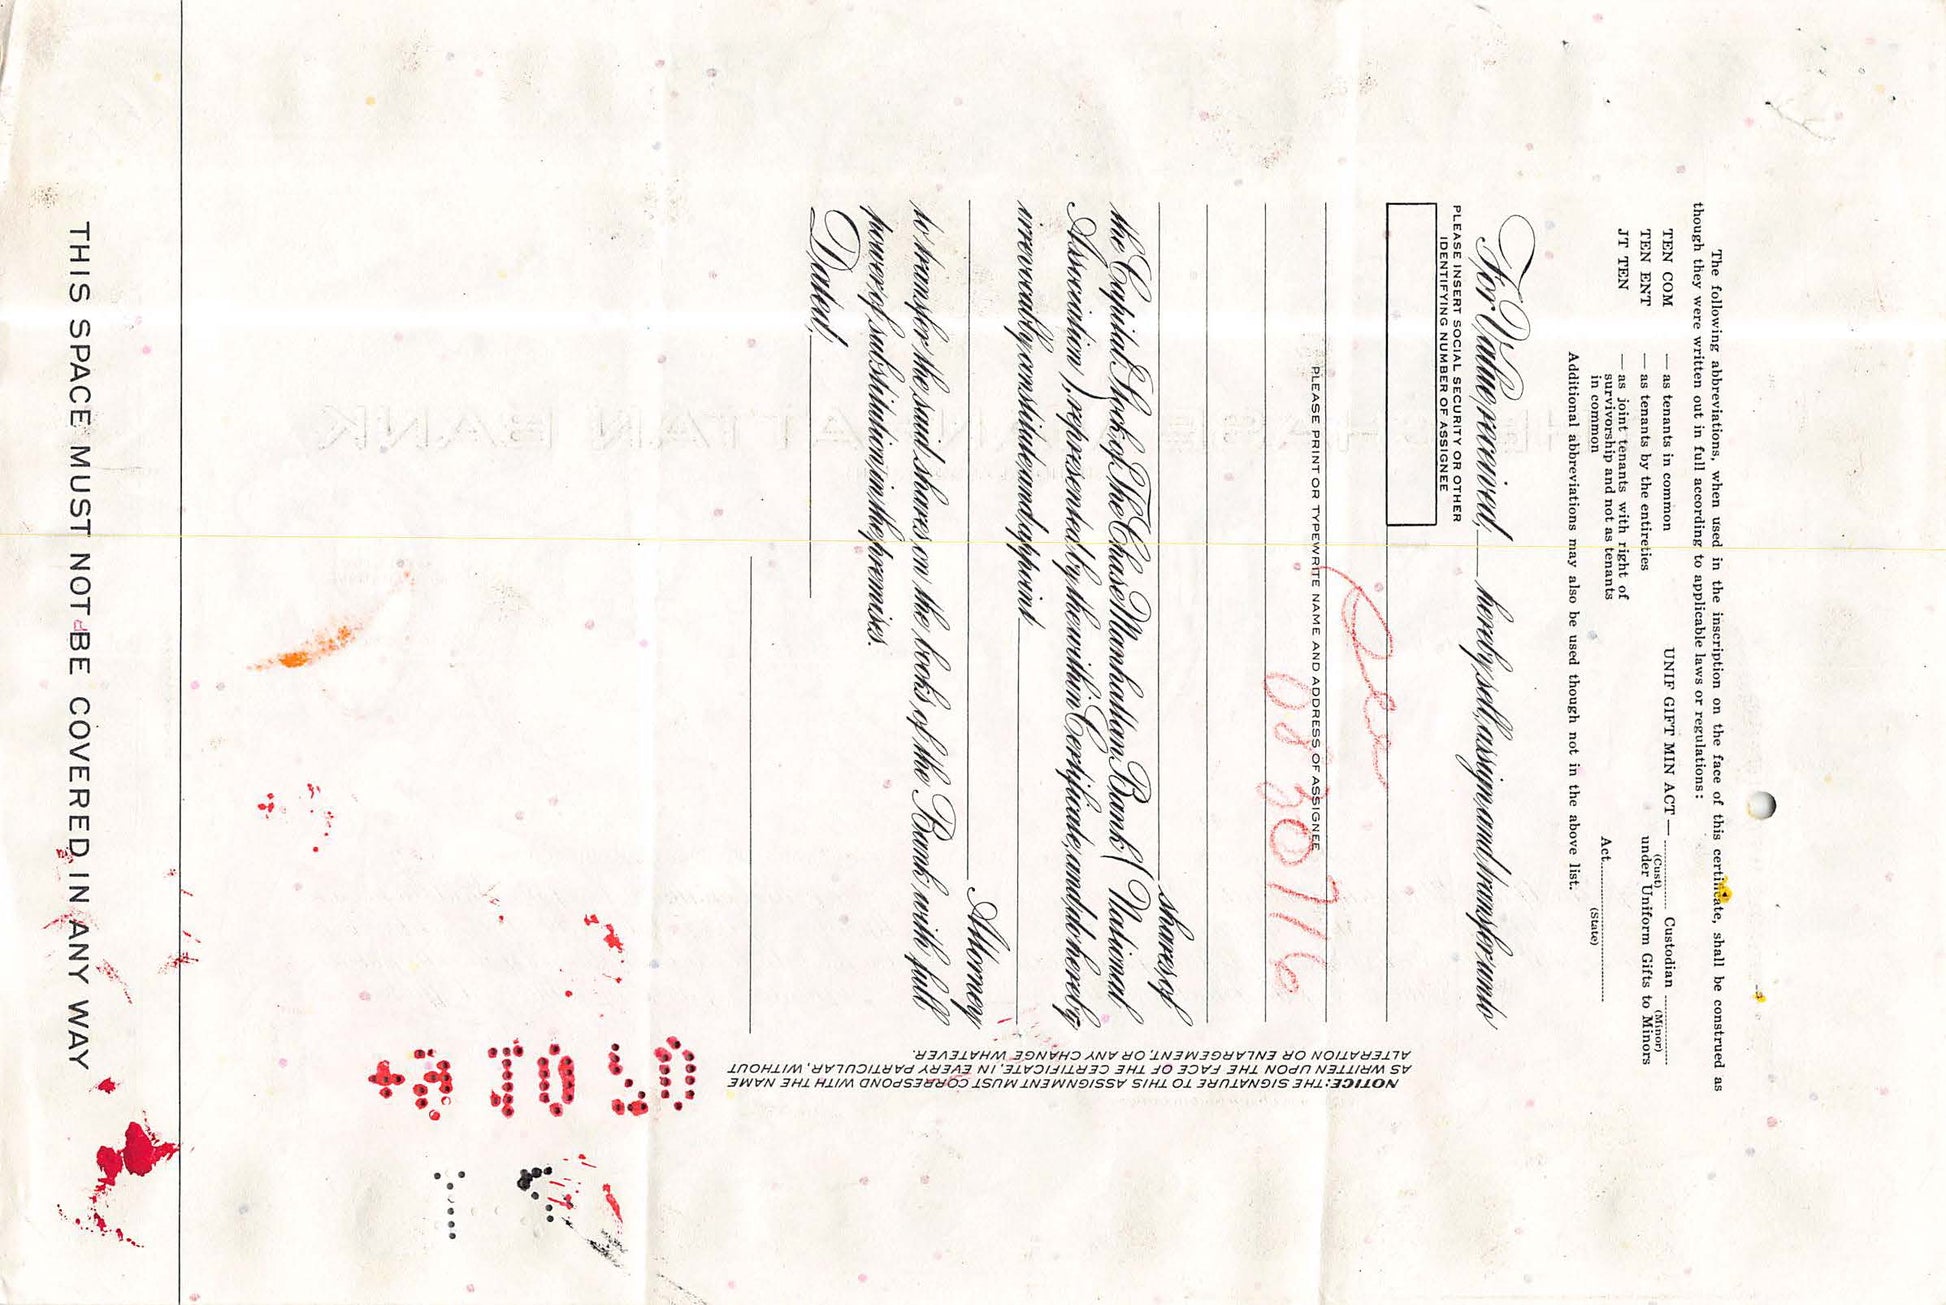 The following abbreviations, when used in the inscription on the face of this certificate, shall be construed as
though they were written out in full according to applicable laws or regulations:
TEN COM — as tenants in common
TEN ENT — as tenants by the entireties
JT TEN — as joint tenants with right of
survivorship and not as tenants
in common
UNIF GIFT MIN ACT — Custodian
(Cust) (Minor)
under Uniform Gifts to Minors
Act
(State)
Additional abbreviations may also be used though not in the above list.
For Value received, hereby sell, assign and transfer unto
PLEASE INSERT SOCIAL SECURITY OR OTHER
IDENTIFYING NUMBER OF ASSIGNEE
PLEASE PRINT OR TYPEWRITE NAME AND ADDRESS OF ASSIGNEE
0830716
shares of
the Capital Stock of The Chase Manhattan Bank (National
Association), represented by the within Certificate, and do hereby
irrevocably constitute and appoint
Attorney
to transfer the said shares on the books of the Bank with full
power of substitution in the premises.
Dated,
NOTICE: THE SIGNATURE TO THIS ASSIGNMENT MUST CORRESPOND WITH THE NAME
AS WRITTEN UPON THE FACE OF THE CERTIFICATE, IN EVERY PARTICULAR, WITHOUT
ALTERATION OR ENLARGEMENT, OR ANY CHANGE WHATEVER.
THIS SPACE MUST NOT BE COVERED IN ANY WAY